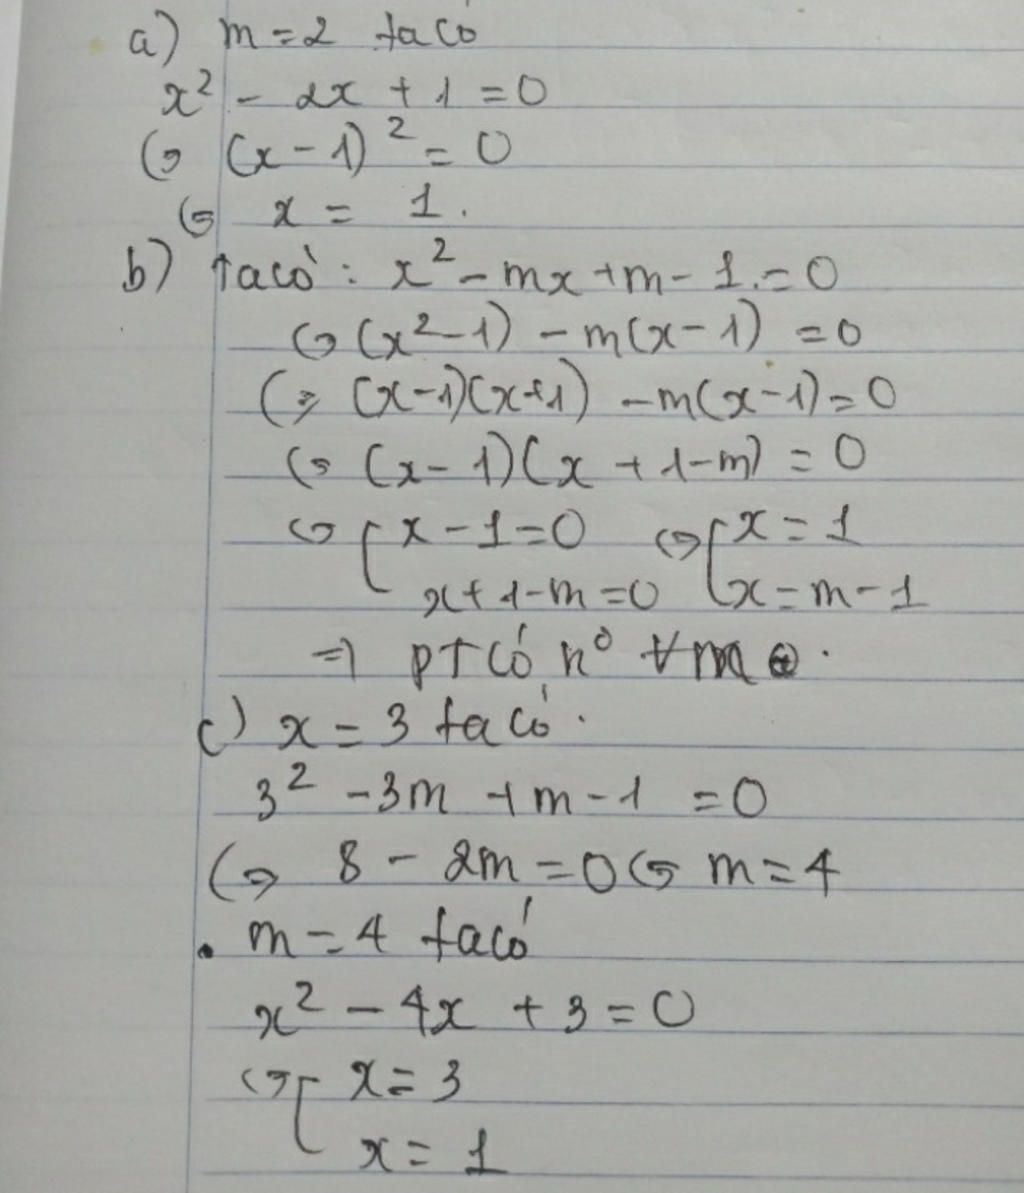 a) m = 2 ta có
x² - 2x + 1 = 0
⇔ (x - 1)² = 0
⇔ x = 1.
b) Ta có : x² - mx + m - 1 = 0
⇔ (x² - 1) - m(x - 1) = 0
⇔ (x - 1)(x + 1) - m(x - 1) = 0
⇔ (x - 1)(x + 1 - m) = 0
⇔ [ x - 1 = 0 ⇔ [ x = 1
x + 1 - m = 0 x = m - 1
⇒ PT có n⁰ ∀ m .
c) x = 3 ta có .
3² - 3m + m - 1 = 0
⇔ 8 - 2m = 0 ⇔ m = 4
. m = 4 ta có
x² - 4x + 3 = 0
⇔ [ x = 3
x = 1